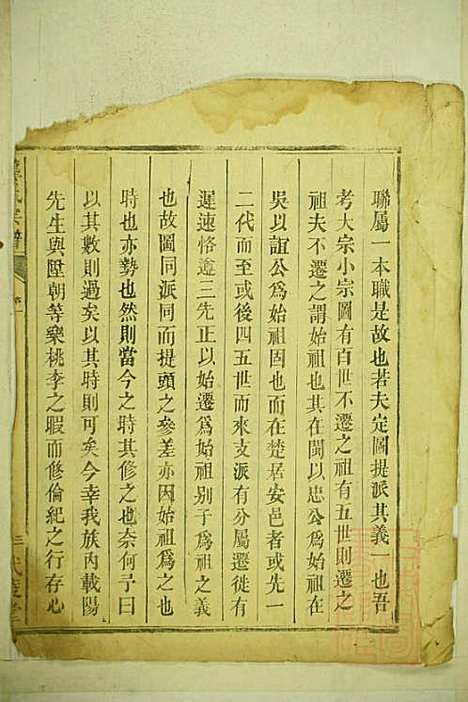 聯屬一本職是故也若夫定圖提派其義一也吾
考大宗小宗圖有百世不遷之祖有五世則遷之
祖夫不遷之謂始祖也其在閩以忠公為始祖在
吳以誼公為始祖固也而在楚居安邑者或先一
二代而至或後四五世而來支派有分屬遷徙有
遲速恪遵三先正以始遷為始祖別于為祖之義
也故圖同派同而提頭之參差亦因始祖為之也
時也亦勢也然則當今之時其修之也奈何予曰
以其數則過矣以其時則可矣今幸我族內載陽
先生與陞朝等樂桃李之暇而修倫紀之行存心
氏宗譜
三